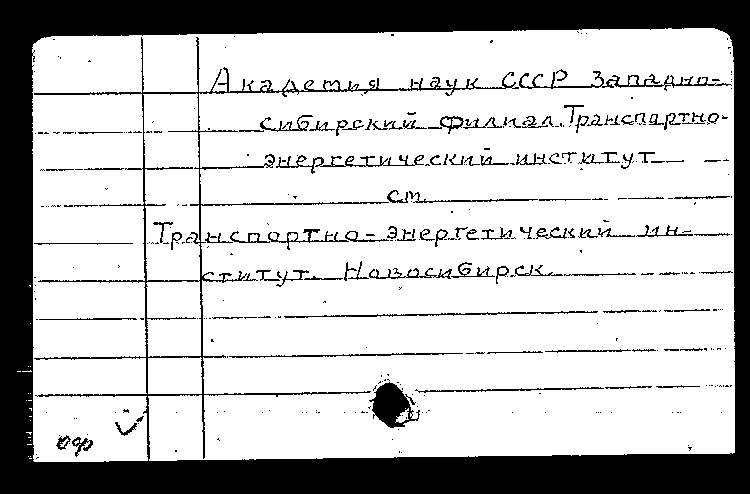 Академия наук СССР Западно-
сибирский филиал. Транспортно-
энергетический институт
см.
Транспортно-энергетический ин-
ститут. Новосибирск.